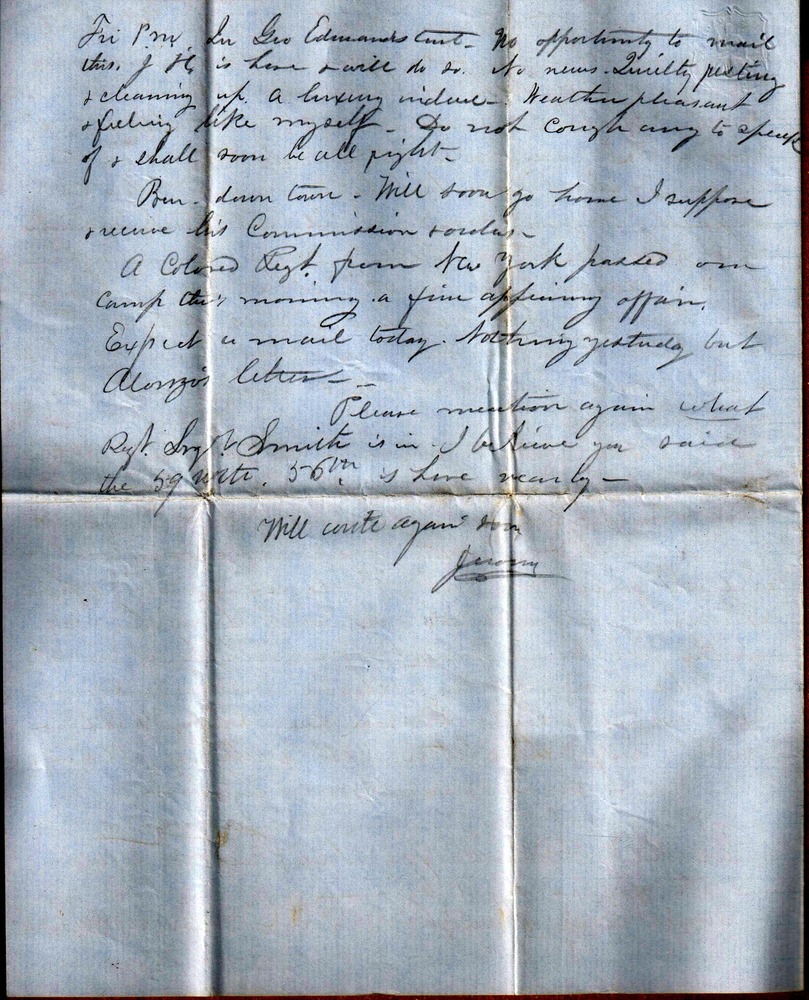 Fri P.M. In Geo Edmands tent - No opportunity to mail
this. J. H. is here & will do so. No news. Quietly resting
& cleaning up. A luxury indeed - Weather pleasant
& feeling like myself - Do not cough any to speak
of & shall soon be all right -
Ben. down town - Will soon go home I suppose
& receive his Commission & orders -
A Colored Regt. from New York passed our
Camp this morning a fine appearing affair.
Expect a mail today. Nothing yesterday but
Alonzo's letter -
Please mention again what
Regt. Sergt Smith is in - I believe you said
the 59. 56th is here nearby -
Will write again soon